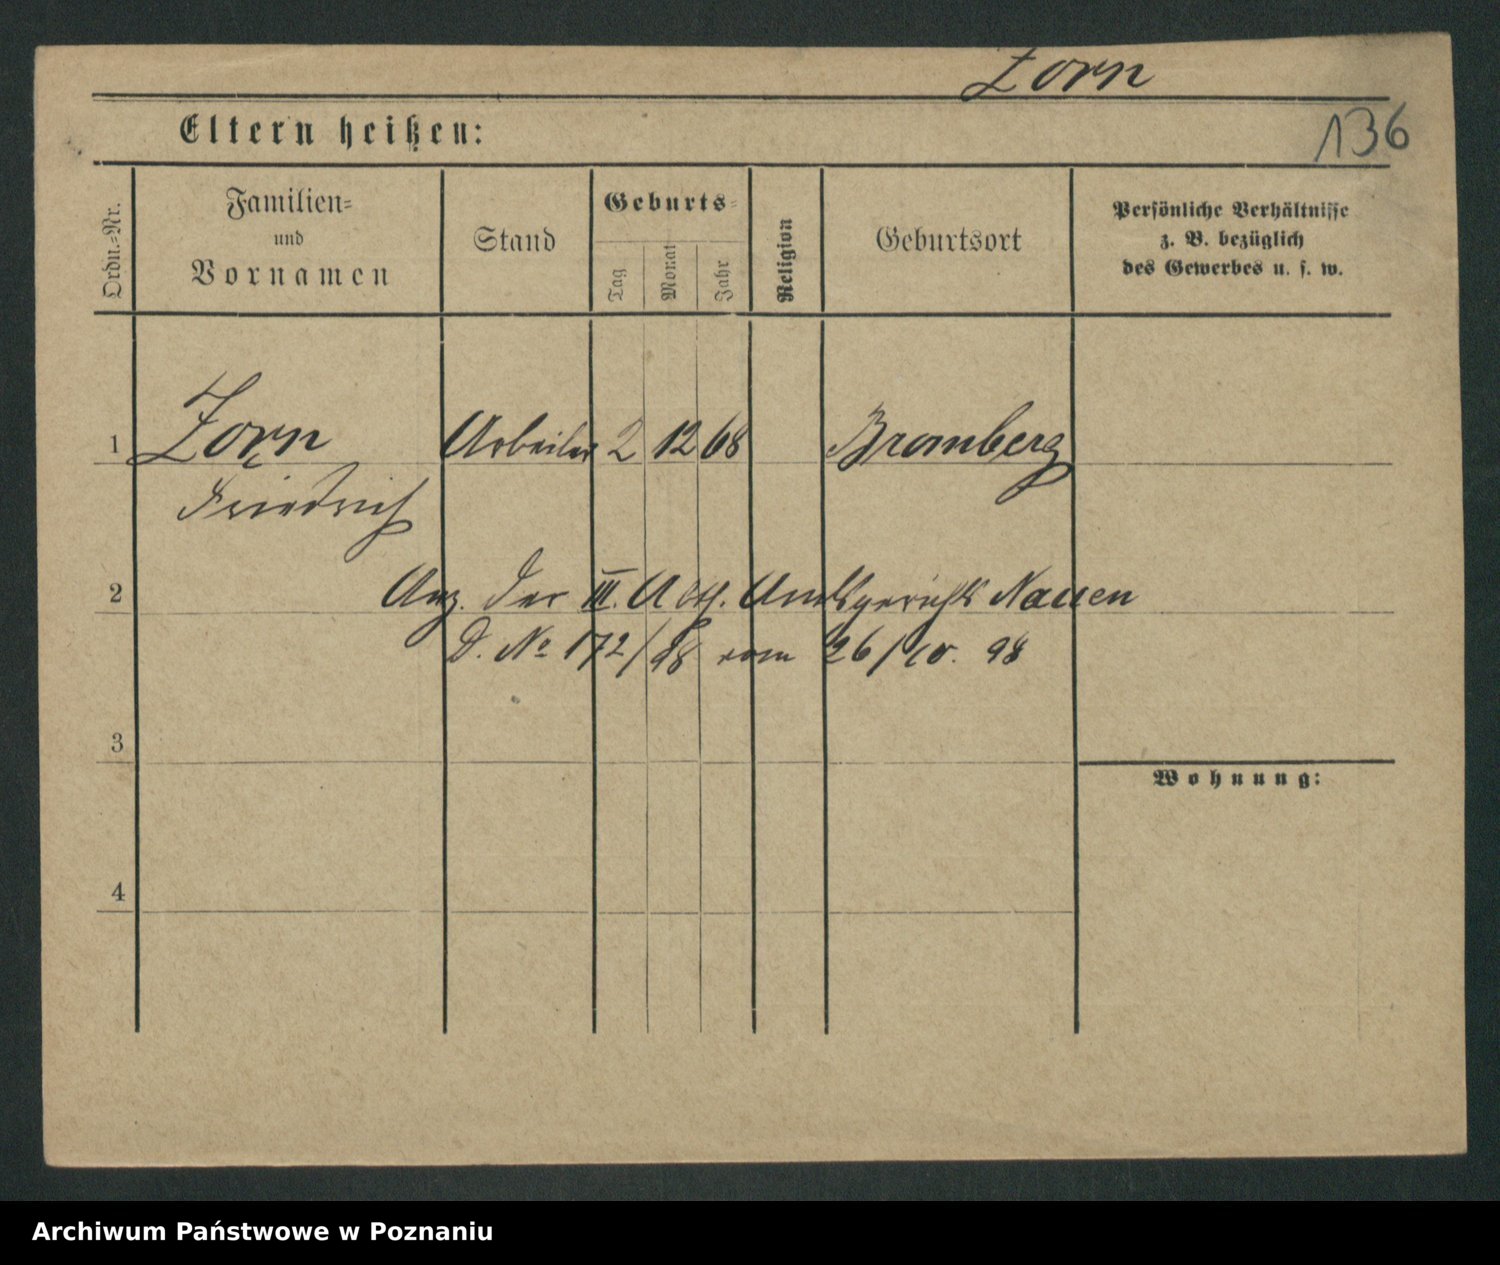 Zorn
136
Eltern heißen:
Ordn.=Nr.
Familien=
und
Vornamen
Stand
Geburts=
Tag
Monat
Jahr
Religion
Geburtsort
Persönliche Verhältnisse
z. B. bezüglich
des Gewerbes u. s. w.
1 Zorn Arbeiter 2 12 68 Bromberg
Friedrich
2 Anz. der III. Abth. Amtsgerichts Nauen
D. No 172/98 vom 26/10. 98
3
Wohnung:
4
Archiwum Państwowe w Poznaniu